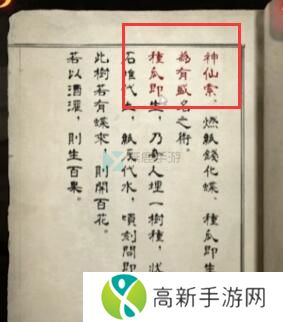 神仙索、燃紙錢化蝶、種瓜即生
為有盛名之術。
種瓜即生，乃奇人埋一樹種，狀
石堆代土，紙灰代水，頃刻間即
此樹若有蝶來，則開百花。
若以酒灌，則生百果。
高新手游网